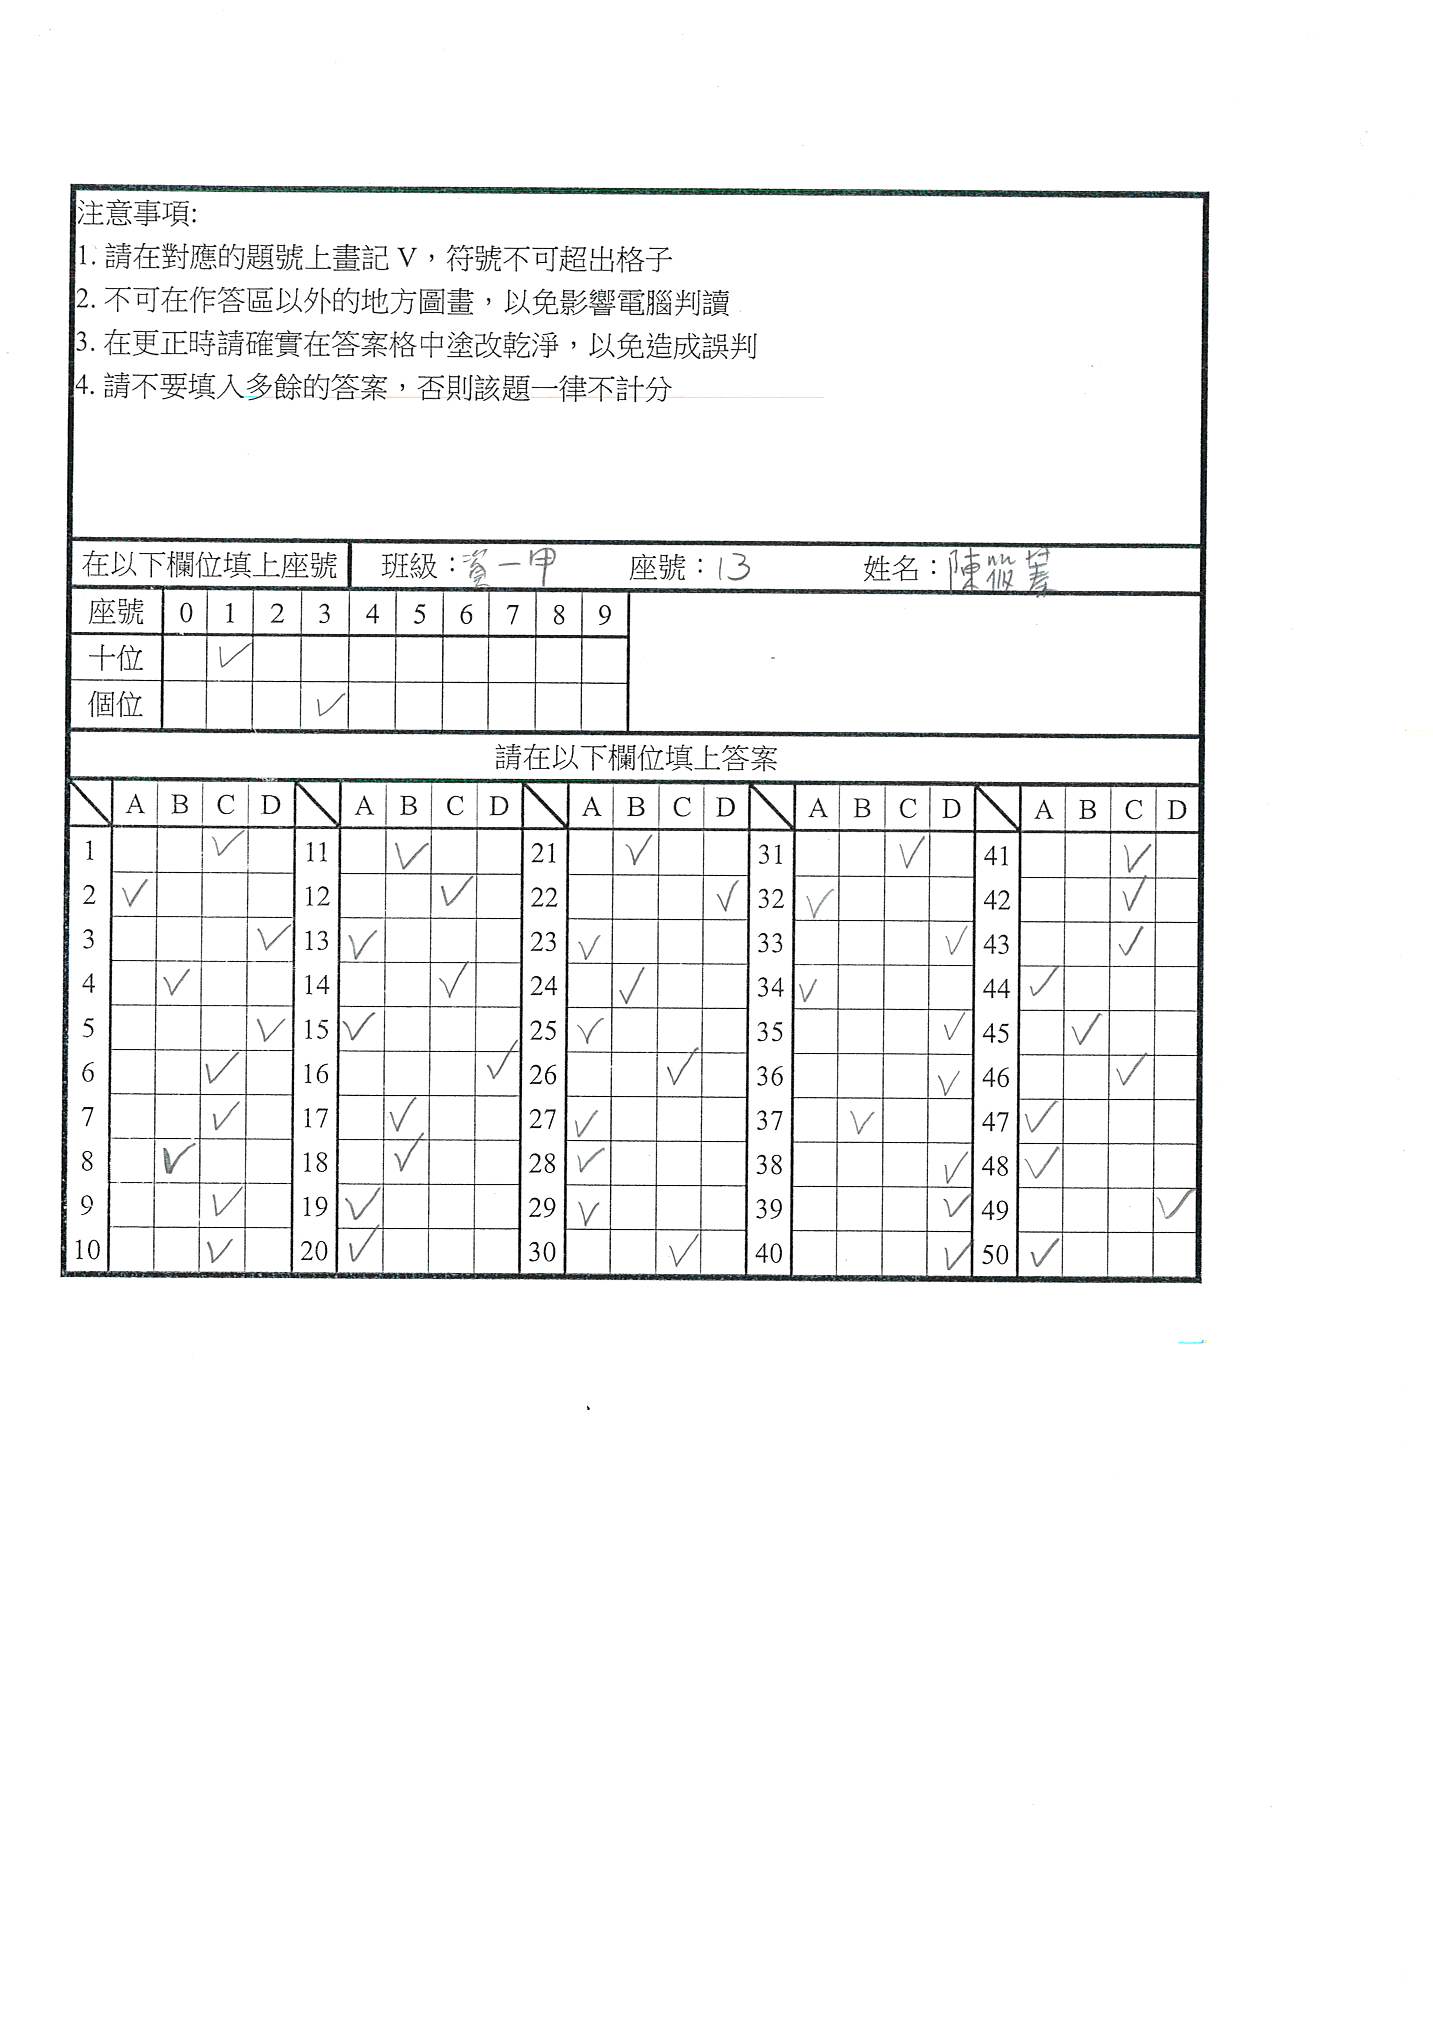 注意事項:
1. 請在對應的題號上畫記 V，符號不可超出格子
2. 不可在作答區以外的地方圖畫，以免影響電腦判讀
3. 在更正時請確實在答案格中塗改乾淨，以免造成誤判
4. 請不要填入多餘的答案，否則該題一律不計分
在以下欄位填上座號 班級：資一甲 座號：13 姓名：陳筱蓁
座號 0 1 2 3 4 5 6 7 8 9
十位 ✓
個位 ✓
請在以下欄位填上答案
A B C D A B C D A B C D A B C D A B C D
1 ✓ 11 ✓ 21 ✓ 31 ✓ 41 ✓
2 ✓ 12 ✓ 22 ✓ 32 ✓ 42 ✓
3 ✓ 13 ✓ 23 ✓ 33 ✓ 43 ✓
4 ✓ 14 ✓ 24 ✓ 34 ✓ 44 ✓
5 ✓ 15 ✓ 25 ✓ 35 ✓ 45 ✓
6 ✓ 16 ✓ 26 ✓ 36 ✓ 46 ✓
7 ✓ 17 ✓ 27 ✓ 37 ✓ 47 ✓
8 ✓ 18 ✓ 28 ✓ 38 ✓ 48 ✓
9 ✓ 19 ✓ 29 ✓ 39 ✓ 49 ✓
10 ✓ 20 ✓ 30 ✓ 40 ✓ 50 ✓